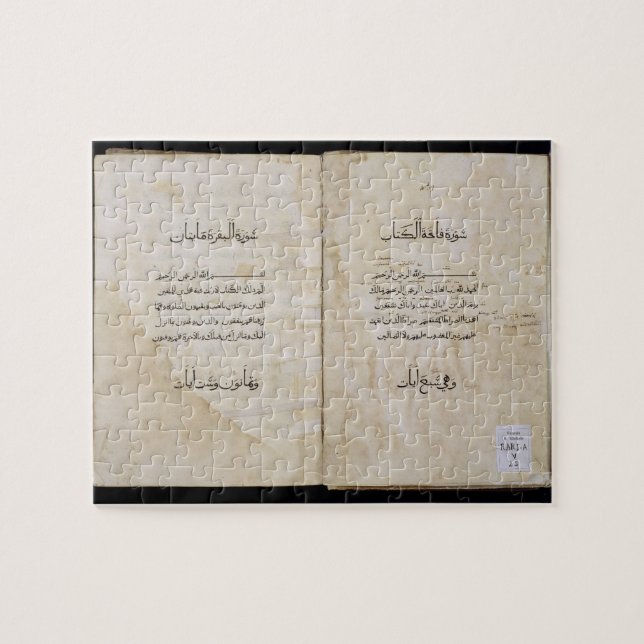 سورة فاتحة الكتاب
بسم الله الرحمن الرحيم
الحمد لله رب العالمين الرحمن الرحيم مالك
يوم الدين اياك نعبد واياك نستعين
اهدنا الصراط المستقيم صراط الذين انعمت
عليهم غير المغضوب عليهم ولا الضالين
وهي سبع آيات
سورة البقرة مائتان
بسم الله الرحمن الرحيم
الم ذلك الكتاب لا ريب فيه هدى للمتقين
الذين يؤمنون بالغيب ويقيمون الصلوة ومما
رزقناهم ينفقون والذين يؤمنون بما انزل
اليك وما انزل من قبلك وبالآخرة هم يوقنون
وثمانون وست آيات
RARI-A
V